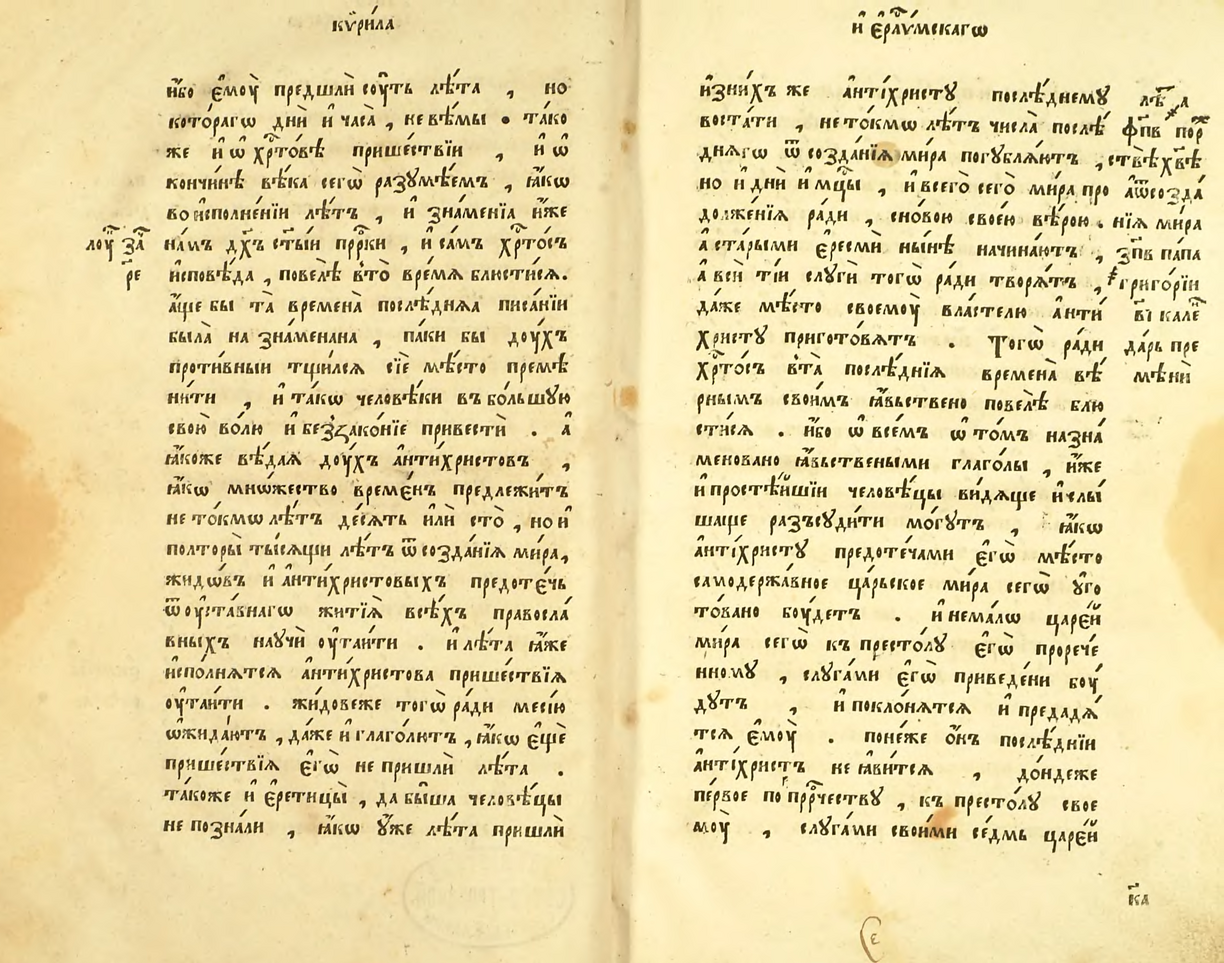 кѷри́ла
и҆́бо є҆моу̀ предшлѝ соу́ть лѣ́та , но
кото́рагѡ днѝ и҆ часа̀ , не вѣ́мы . та́ко
же и҆ ѡ҆ хрⷭ҇то́вѣ прише́ствїи , и҆ ѡ҆
кончи́нѣ вѣ́ка сегѡ̀ разꙋмѣ́емъ , ꙗ҆́кѡ
во и҆сполне́нїи лѣ́тъ , и҆ зна́менїа и҆́же
на́мъ дх҃ъ ст҃ы́и прⷪ҇ро́ки , и҆ са́мъ хрⷭ҇то́съ
и҆сповѣ́да , повелѣ̀ в̾то̀ вре́мѧ блюсти́сѧ.
а҆́ще бы та̀ времена̀ послѣ́днѧѧ писа́нїи
была̀ на зна́менана , па́ки бы доу́хъ
проти́вныи тщи́лсѧ сїѐ мѣ́сто премѣ
ни́ти , и҆ та́кѡ человѣ́ки въ бо́льшꙋю
свою̀ во́лю и҆ беззако́нїе привестѝ . а҆
ꙗ҆́коже вѣ́даѧ доу́хъ а҆нтихри́стовъ ,
ꙗ҆́кѡ мно́жество време́нъ предлежи́тъ
не то́кмѡ лѣ́тъ де́сѧть и҆лѝ сто̀ , но и҆
полторы̀ ты́сѧщи лѣ́тъ ѿ созда́нїѧ ми́ра,
жидѡ́въ и҆ а҆нтихри́стовыхъ предоте́чь
ѿ оу҆ста́внагѡ житїѧ̀ всѣ́хъ правосла́
вныхъ научѝ оу҆таи́ти . и҆ лѣ́та ꙗ҆́же
и҆спо́лнѧтсѧ а҆нтихри́стова прише́ствїѧ
оу҆таи́ти . жи́довеже тогѡ̀ ра́ди месі́ю
ѡ҆жида́ютъ , да́же и҆ глаго́лютъ , ꙗ҆́кѡ є҆щѐ
прише́ствїѧ є҆гѡ̀ не пришлѝ лѣ́та .
та́коже и҆ є҆ретицы̀ , да бы́ша человѣ́цы
не позна́ли , ꙗ҆́кѡ ᲂу҆жѐ лѣ́та пришлѝ
и҆ є҆рⷭ҇лѵ́мскагѡ
и҆зни́хъ же а҆нті́христꙋ послѣ́днемꙋ
воста́ти , не то́кмѡ лѣ́тъ числа̀ послѣ́
днѧгѡ ѿ созда́нїѧ ми́ра погꙋблѧ́ютъ ,
но и҆ днѝ и҆ мцⷭ҇ы , и҆ всего̀ сего̀ ми́ра про
долже́нїѧ ра́ди , сно́вою свое́ю вѣ́рою .
а҆ ста́рыми є҆ресмѝ ны́нѣ начина́ютъ ,
а҆ всѝ ті́и слꙋгѝ тогѡ̀ ра́ди творѧ́тъ ,
да́же мѣ́сто своемоу̀ власте́лю а҆нти́
христꙋ пригото́вѧтъ . Тогѡ̀ ра́ди
хрⷭ҇то́съ в̾та̀ послѣ́днїѧ времена̀ вѣ́
рнымъ свои́мъ ꙗ҆́вьствено повелѣ̀ блю
сти́сѧ . и҆́бо ѡ҆ все́мъ ѡ҆ то́мъ назна́
меновано ꙗ҆́вьствеными глаго́лы , и҆́же
и҆ простѣ́йшїи человѣ́цы ви́дѧще и҆ слы́
шаще разъсуди́ти мо́гутъ , ꙗ҆́кѡ
а҆нті́христꙋ предоте́чами є҆гѡ̀ мѣ́сто
самодержа́вное ца́рьское ми́ра сегѡ̀ ᲂу҆го
то́вано боу́детъ . и҆ нема́лѡ царе́й
ми́ра сегѡ̀ къ престо́лꙋ є҆гѡ̀ прорече́
нномꙋ , слꙋга́ми є҆гѡ̀ приведе́ни боу́
дꙋтъ , и҆ покло́нѧтсѧ и҆ предадѧ́
тсѧ є҆моу̀ . поне́же о҆́нъ послѣ́днїи
а҆нті́христъ не ꙗ҆ви́тсѧ , до́ндеже
пе́рвое по прⷪ҇ро́чествꙋ , къ престо́лꙋ свое
моу̀ , слꙋга́ми свои́ми се́дмь царе́й
лоу҃ за҃
ре
лѣ́та
фп҃в пор
ствѣ хв҃ѣ
а҆ ѿ созда́
нїѧ ми́ра
зп҃в па́па
григо́рїи
в҃і кале
да́рь пре
мѣнѝ
к҃а